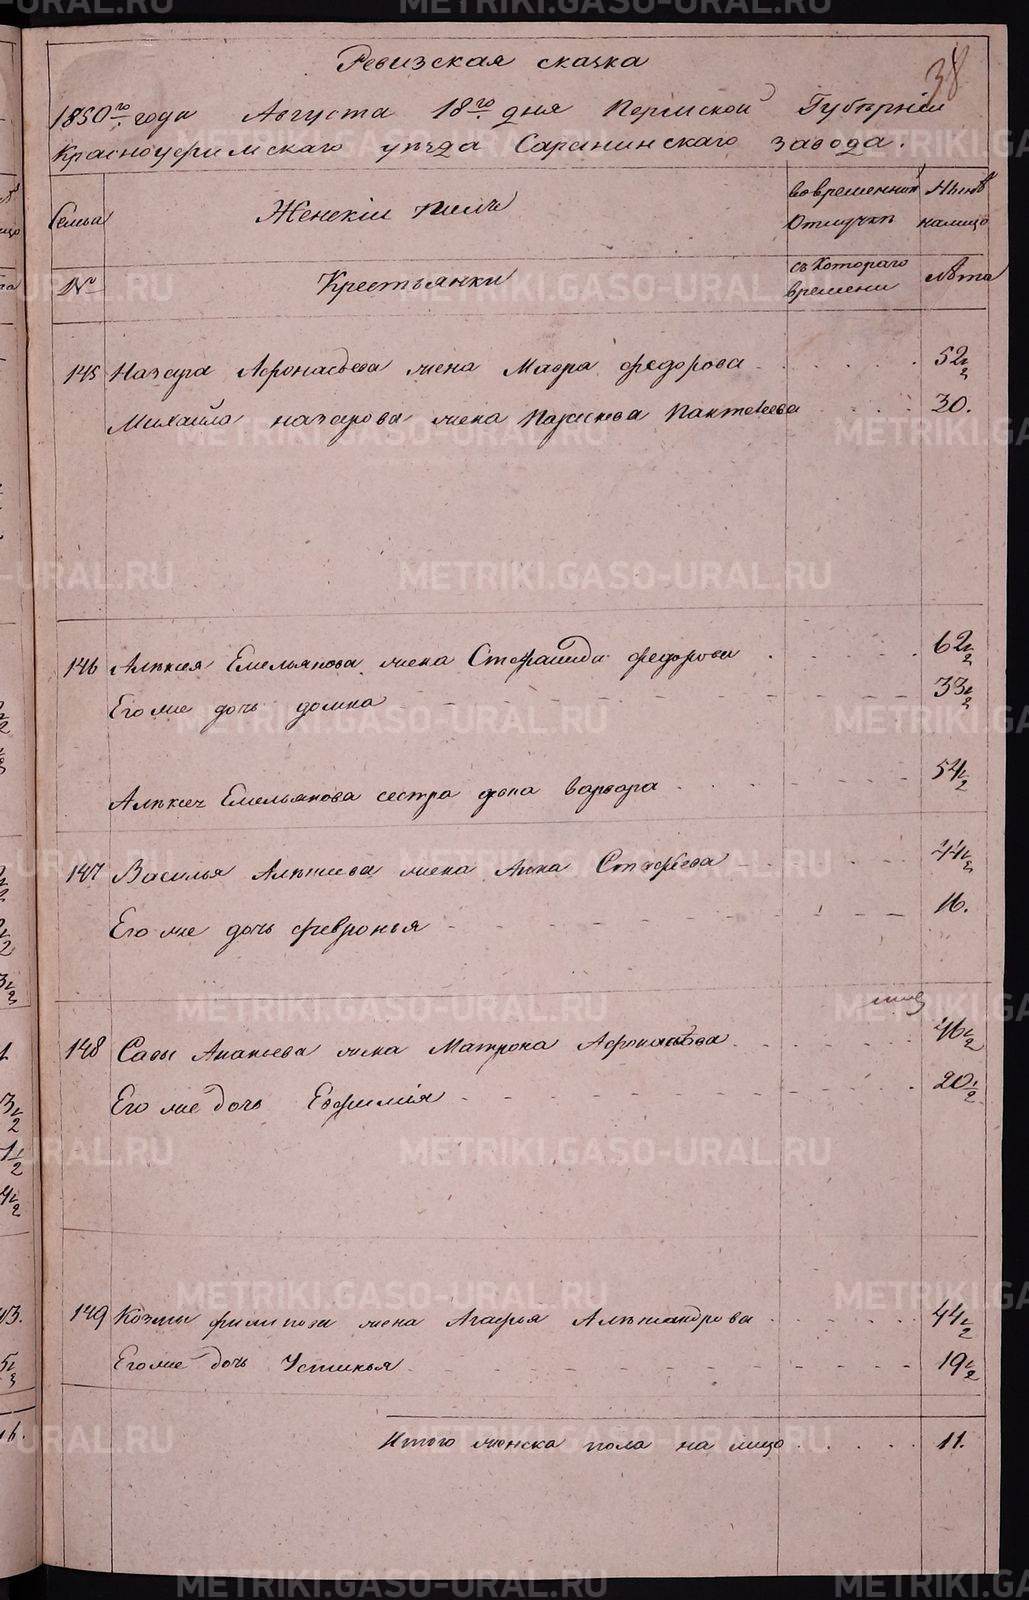 38
Ревизская сказка
1850го года Августа 18го дня Пермской Губѣрніи
Красноуфимскаго уѣзда Саранинскаго завода.
Семьи
Женскій полъ
во временной отлучкѣ
Нынѣ налицо
№
Крестьянки
съ Котораго времени
Лѣта
145 Назара Афонасьева жена Мавра федорова 52 1/2
Михайла назарова жена Параскова Пантелеева 30.
146 Алѣксѣя Емельянова жена Стефанида федорова 62 1/2
Его же дочь домна 33 1/2
Алѣксѣя Емельянова сестра дѣвка варвара 54 1/2
147 Василья Алѣксѣева жена Анна Стафѣева 44 1/2
Его же дочь февронья 16.
148 Савы Ананьева жена Матрона Афонасьева 46 1/2
Его же дочь Евфимія 20 1/2
149 Козмы филипова жена Агафья Алѣксандрова 44 1/2
Его же дочь Устинья 19 1/2
Итого женска пола на лицо 11.
METRIKI.GASO-URAL.RU